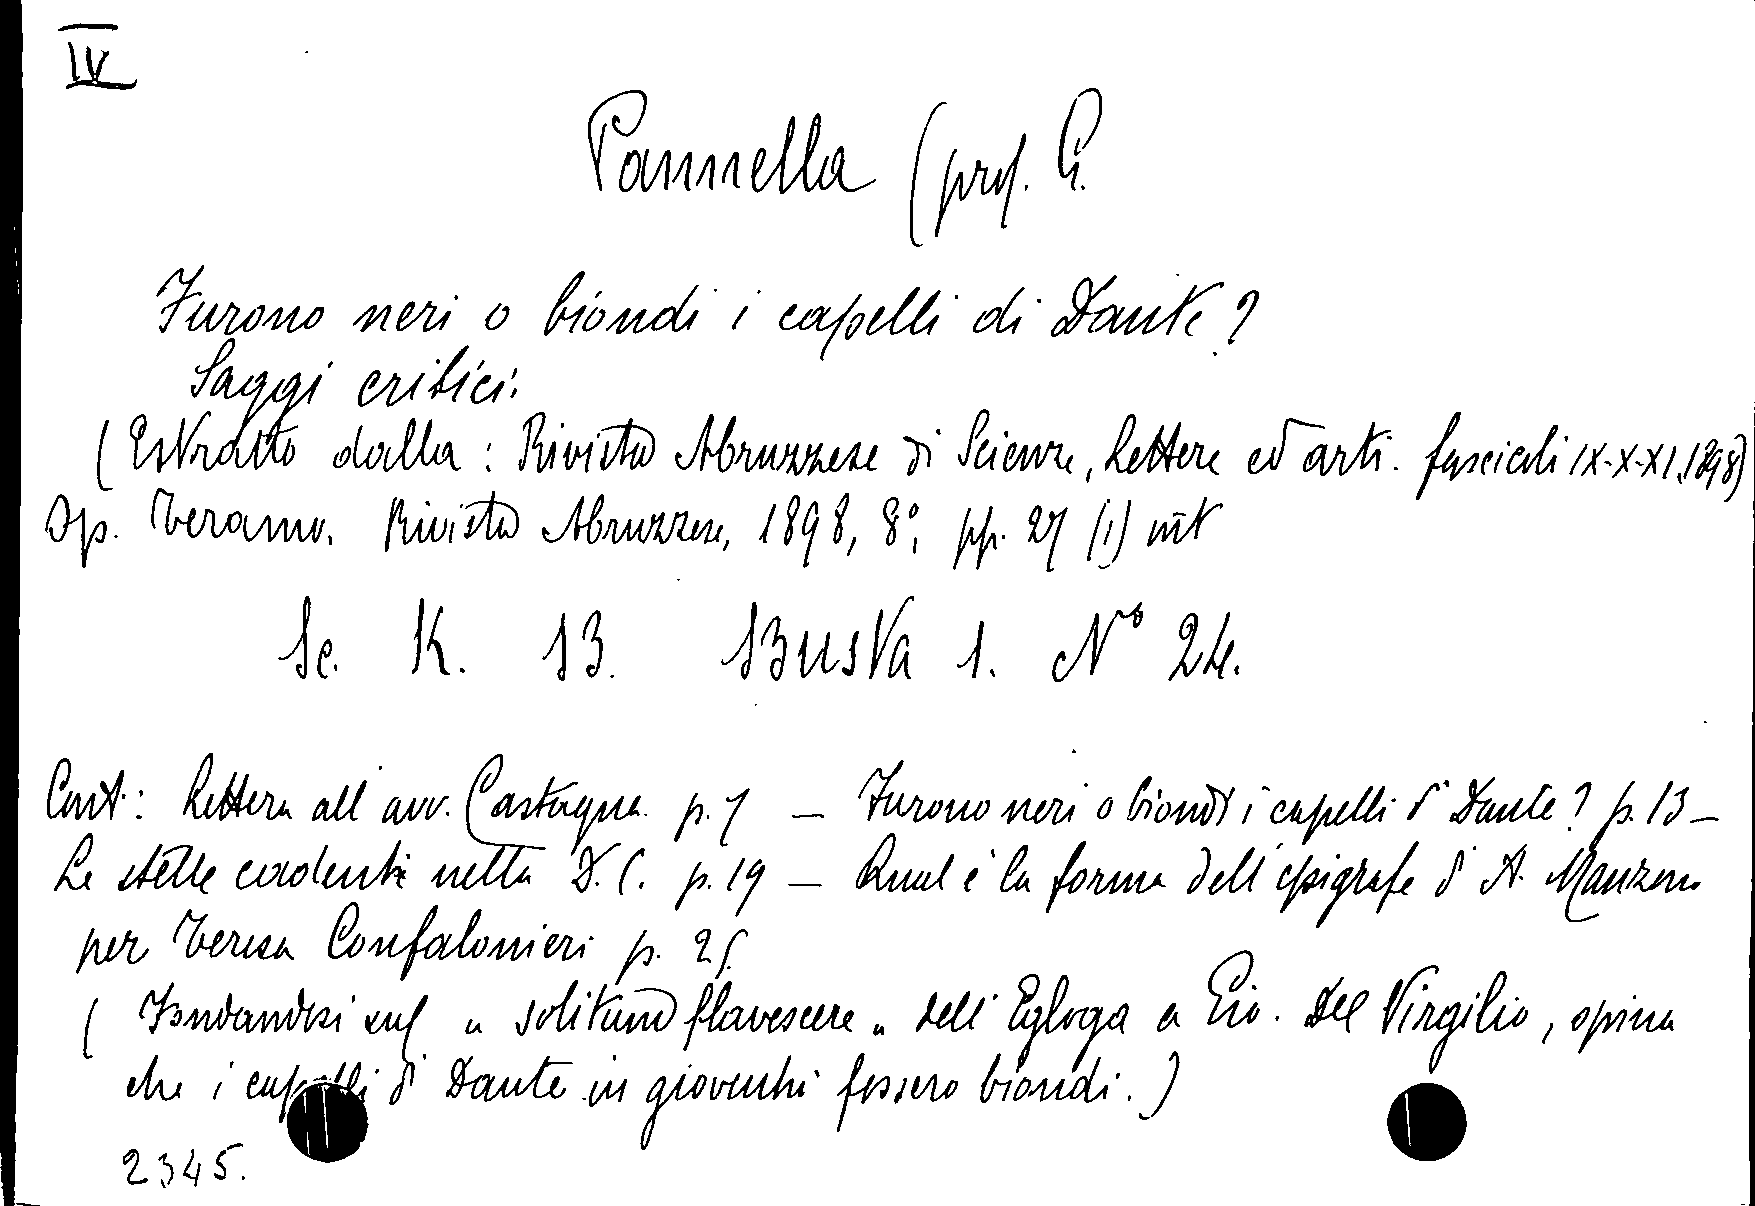 IV
Pannella (prof. G.
Furono neri o biondi i capelli di Dante?
Saggi critici.
(Estratto dalla: Rivista Abruzzese di Scienze, Lettere ed arti. fascicoli IX-X-XI, 1898)
Op. Teramo. Rivista Abruzzese, 1898, 8°, pp. 27 (1)
Sc. K. 13. Busta 1. N° 24.
Cont.: Lettera all'avv. Castagna. p. 7 — Furono neri o biondi i capelli di Dante? p. 13 —
Le stelle cadenti nella D.C. p. 19 — Qual è la forma dell'epigrafe di A. Manzoni
per Teresa Confalonieri p. 25.
( Fondandosi sul " solitum flavescere " dell'Egloga a Gio. Del Virgilio, opina
che i capelli di Dante in gioventù fossero biondi.)
2345.